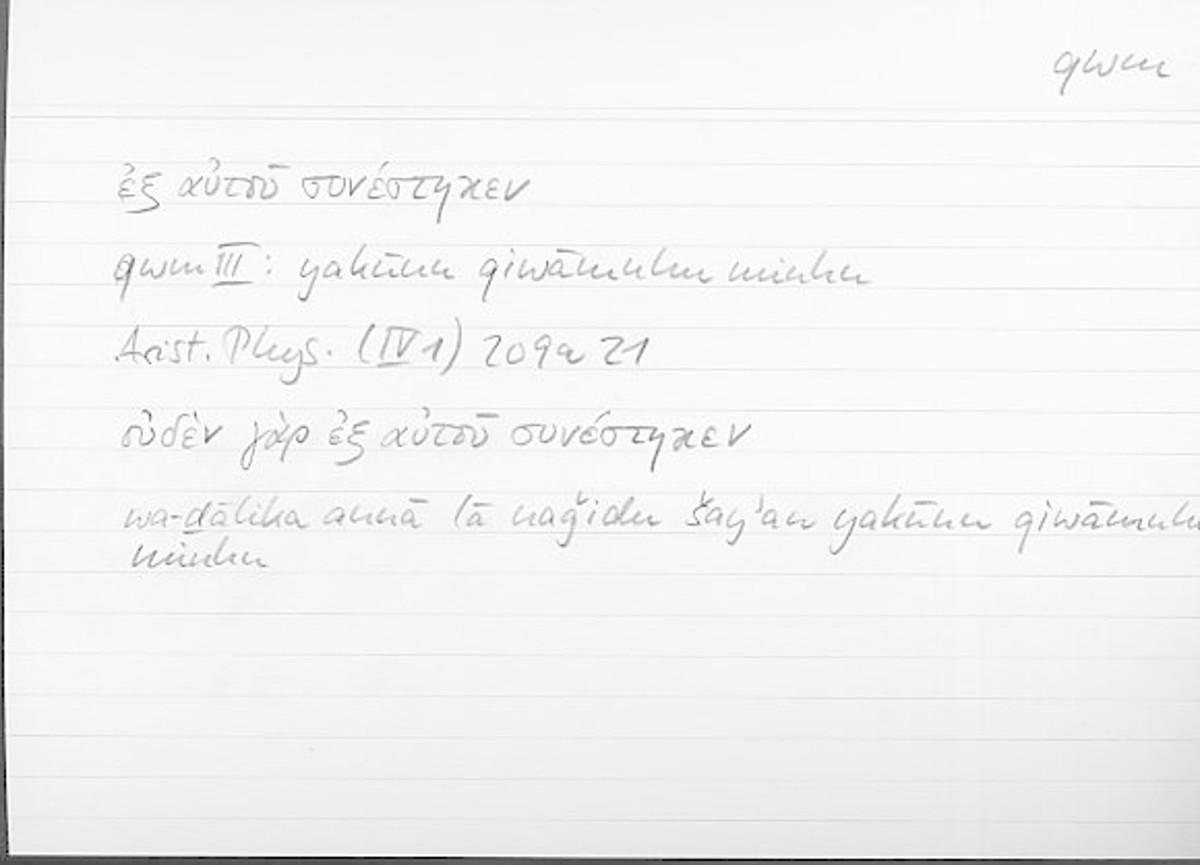 qwm
ἐξ αὐτοῦ συνέστηκεν
qwm III: yakūnu qiwāmuhu minhu
Arist. Phys. (IV 1) 209a 21
οὐδὲν γὰρ ἐξ αὐτοῦ συνέστηκεν
wa-ḏālika annā lā naǧidu šay'an yakūnu qiwāmuhu
minhu